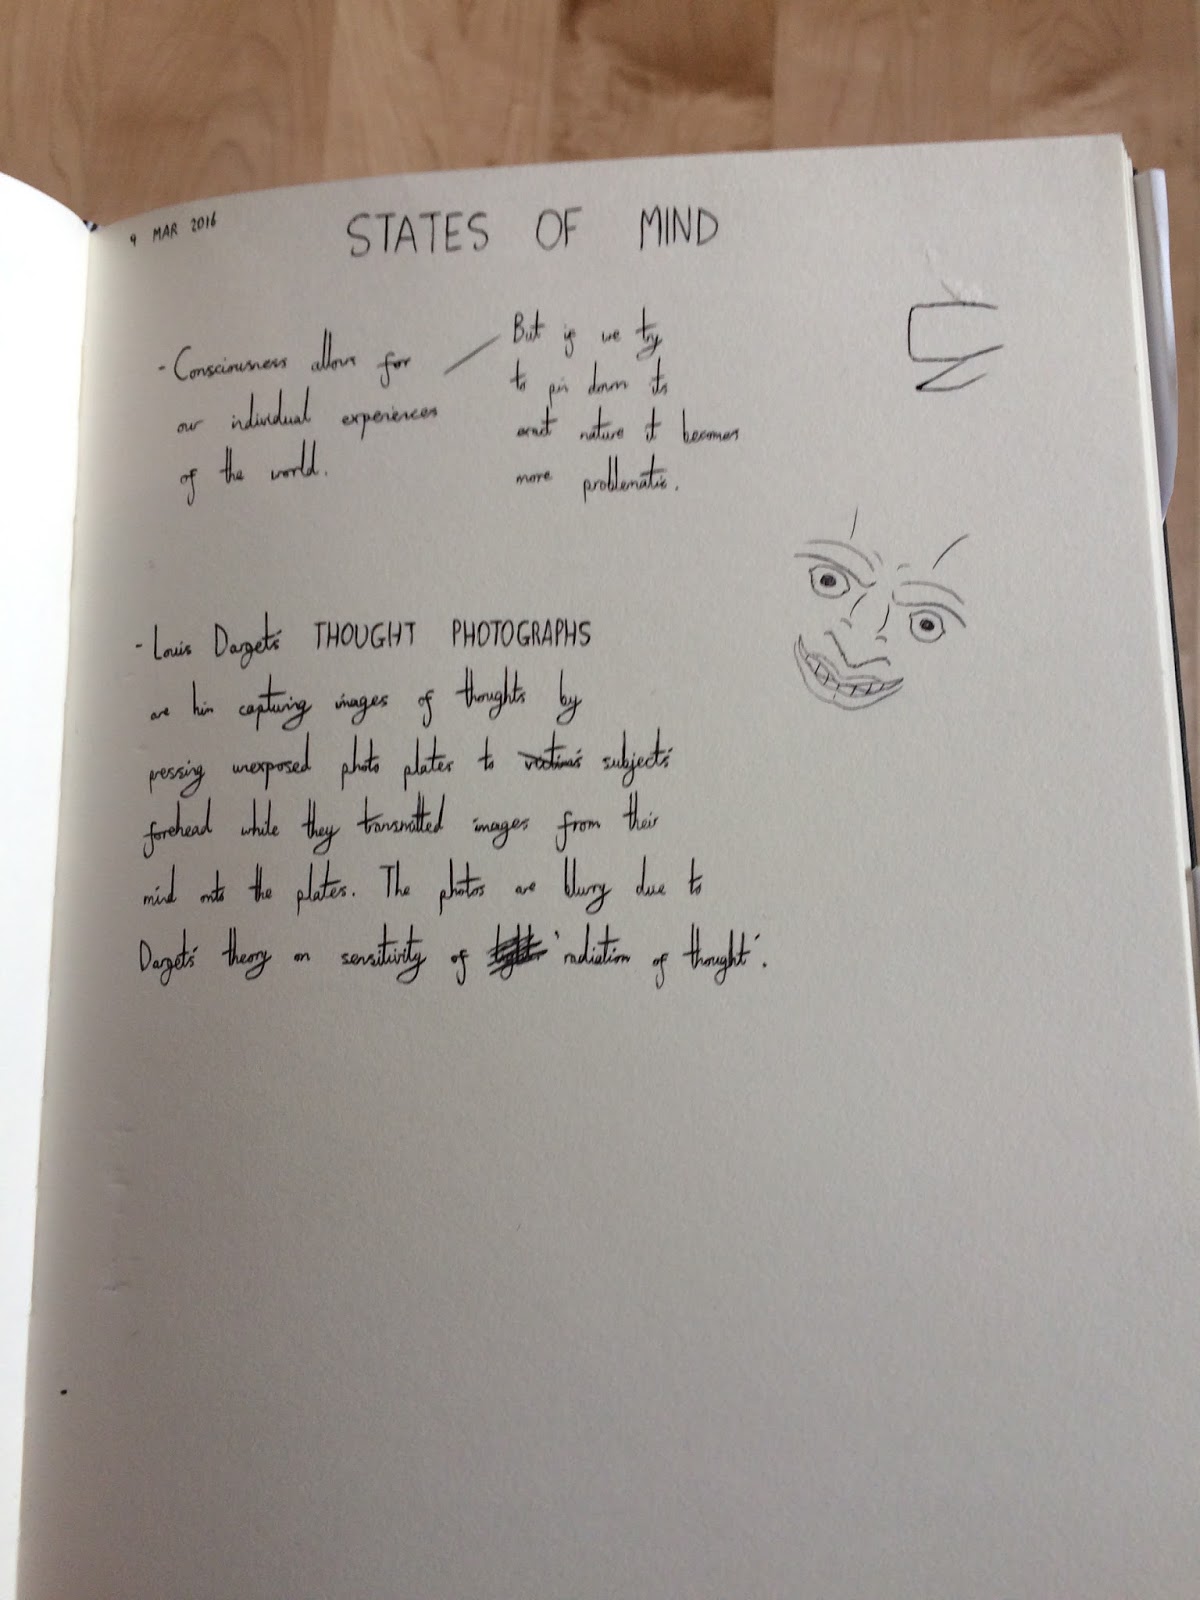 9 MAR 2016
STATES OF MIND
- Consciousness allows for
our individual experiences
of the world.
But if we try
to pin down its
exact nature it becomes
more problematic.
- Louis Darget's THOUGHT PHOTOGRAPHS
are him capturing images of thoughts by
pressing unexposed photo plates to victims' subjects'
forehead while they transmitted images from their
mind onto the plates. The photos are blurry due to
Darget's theory on sensitivity of light 'radiation of thought'.